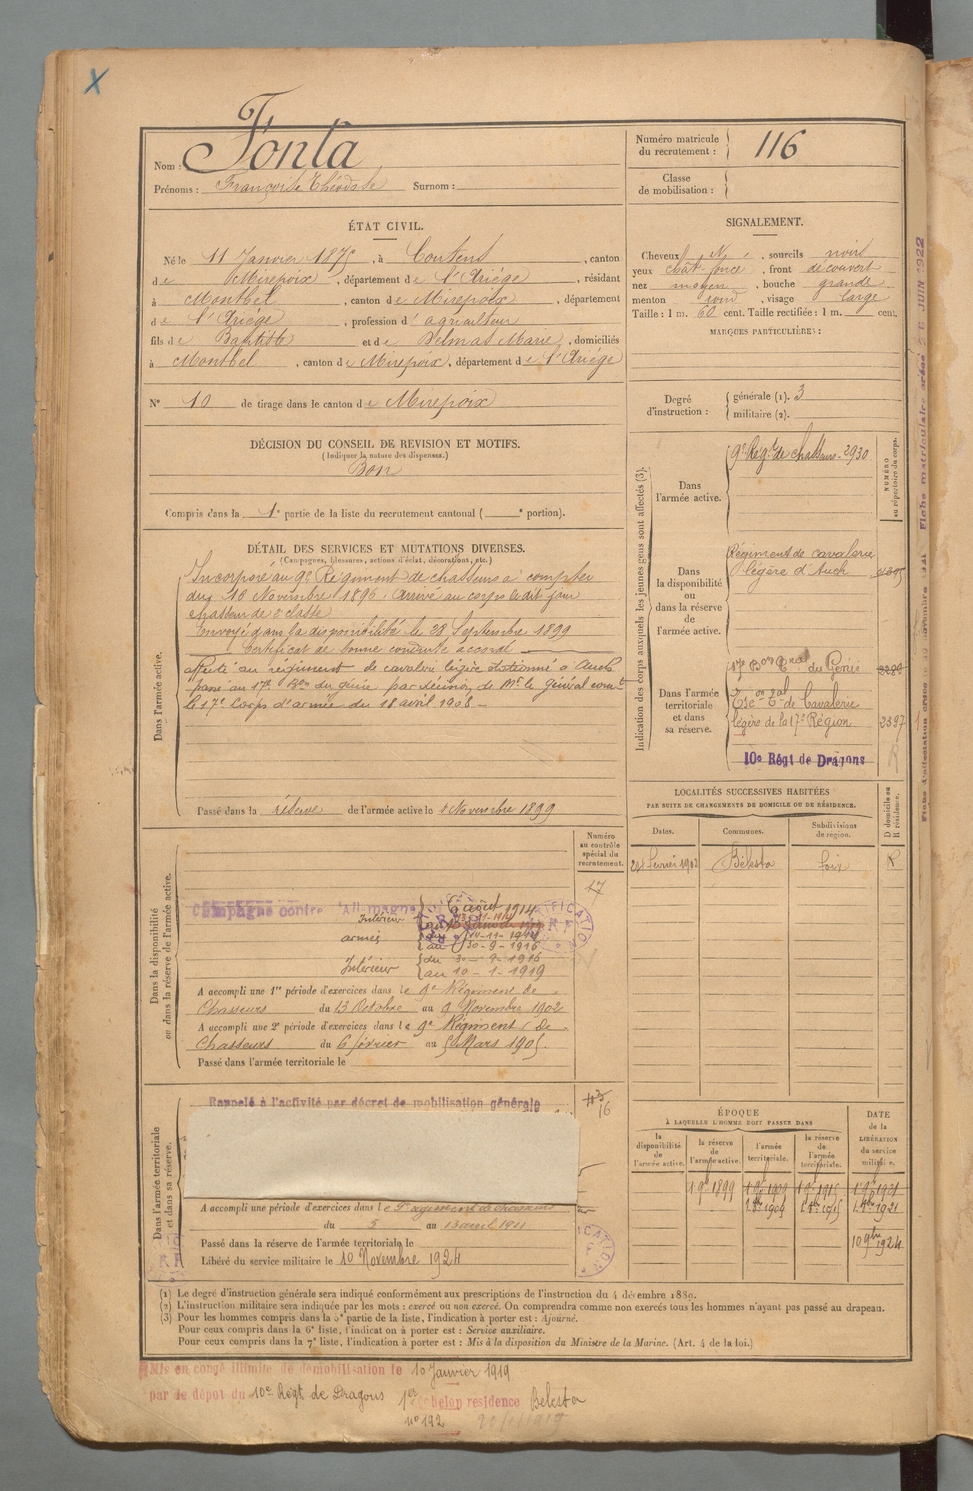 X
Nom : Fonta
Prénoms : François Théodule Surnom :
Numéro matricule du recrutement : 116
Classe de mobilisation :
ÉTAT CIVIL.
Né le 11 Janvier 1875, à Coutens, canton
de Mirepoix, département de l'Ariège, résidant
à Montbel, canton de Mirepoix, département
de l'Ariège, profession d'agriculteur
fils de Baptiste et de Delmas Marie, domiciliés
à Montbel, canton de Mirepoix, département de l'Ariège
N° 10 de tirage dans le canton de Mirepoix
DÉCISION DU CONSEIL DE REVISION ET MOTIFS.
(Indiquer la nature des dispenses.)
Bon
Compris dans la 1e partie de la liste du recrutement cantonal ( e portion).
SIGNALEMENT.
Cheveux N, sourcils noirs
yeux chât. foncé, front découvert
nez moyen, bouche grande
menton rond, visage large
Taille : 1 m. 60 cent. Taille rectifiée : 1 m. cent.
MARQUES PARTICULIÈRES :
Degré d'instruction : générale (1). 3
militaire (2).
DÉTAIL DES SERVICES ET MUTATIONS DIVERSES.
(Campagnes, blessures, actions d'éclat, décorations, etc.)
Dans l'armée active.
Incorporé au 9e Régiment de chasseurs à compter
du 16 Novembre 1896. Arrivé au corps le dit jour
chasseur de 2e classe
Envoyé dans la disponibilité le 28 Septembre 1899
Certificat de bonne conduite accordé
affecté au régiment de cavalerie légère stationné à Auch
passé au 17e Bon du génie par décision de Mr le général comt
le 17e Corps d'armée du 18 avril 1908 -
Passé dans la réserve de l'armée active le 1 Novembre 1899
Indication des corps auxquels les jeunes gens sont affectés (3).
NUMÉRO au répertoire du corps.
Dans l'armée active.
9e Régt de chasseurs 2930
Dans la disponibilité ou dans la réserve de l'armée active.
Régiment de cavalerie
légère d'Auch
Dans l'armée territoriale et dans sa réserve.
17e Bon Tal du Génie
de Cavalerie
légère de la 17e Région 2397
R
10e Régt de Dragons
LOCALITÉS SUCCESSIVES HABITÉES
PAR SUITE DE CHANGEMENTS DE DOMICILE OU DE RÉSIDENCE.
D domicile ou R résidence.
Dates. Communes. Subdivisions de région.
février 1902 Bélesta Foix R
Dans la disponibilité ou dans la réserve de l'armée active.
Numéro au contrôle spécial du recrutement.
17
Campagne contre l'Allemagne
Intérieur août 1914
armées du 14-11-1914
au 30-9-1916
Intérieur du -9-1916
au 10-1-1919
A accompli une 1re période d'exercices dans le 9e Régiment de
Chasseurs du 13 Octobre au 9 Novembre 1902
A accompli une 2e période d'exercices dans le 9e Régiment de
Chasseurs du 6 février au 5 Mars 1905
Passé dans l'armée territoriale le
Dans l'armée territoriale et dans sa réserve.
Rappelé à l'activité par décret de mobilisation générale
16
A accompli une période d'exercices dans le
du 5 au 13 avril 1911
Passé dans la réserve de l'armée territoriale le
Libéré du service militaire le 10 Novembre 1924
ÉPOQUE
À LAQUELLE L'HOMME DOIT PASSER DANS
DATE de la LIBÉRATION du service militaire.
la disponibilité de l'armée active.
la réserve de l'armée active.
l'armée territoriale.
la réserve de l'armée territoriale.
1 9bre 1899
10 9bre 1924
(1) Le degré d'instruction générale sera indiqué conformément aux prescriptions de l'instruction du 4 décembre 1889.
(2) L'instruction militaire sera indiquée par les mots : exercé ou non exercé. On comprendra comme non exercés tous les hommes n'ayant pas passé au drapeau.
(3) Pour les hommes compris dans la 5e partie de la liste, l'indication à porter est : Ajourné.
Pour ceux compris dans la 6e liste, l'indication à porter est : Service auxiliaire.
Pour ceux compris dans la 7e liste, l'indication à porter est : Mis à la disposition du Ministre de la Marine. (Art. 4 de la loi.)
Mis en congé illimité de démobilisation le 10 Janvier 1919
par le dépôt du 10e Régt de Dragons 1er échelon résidence Bélesta
n° 192